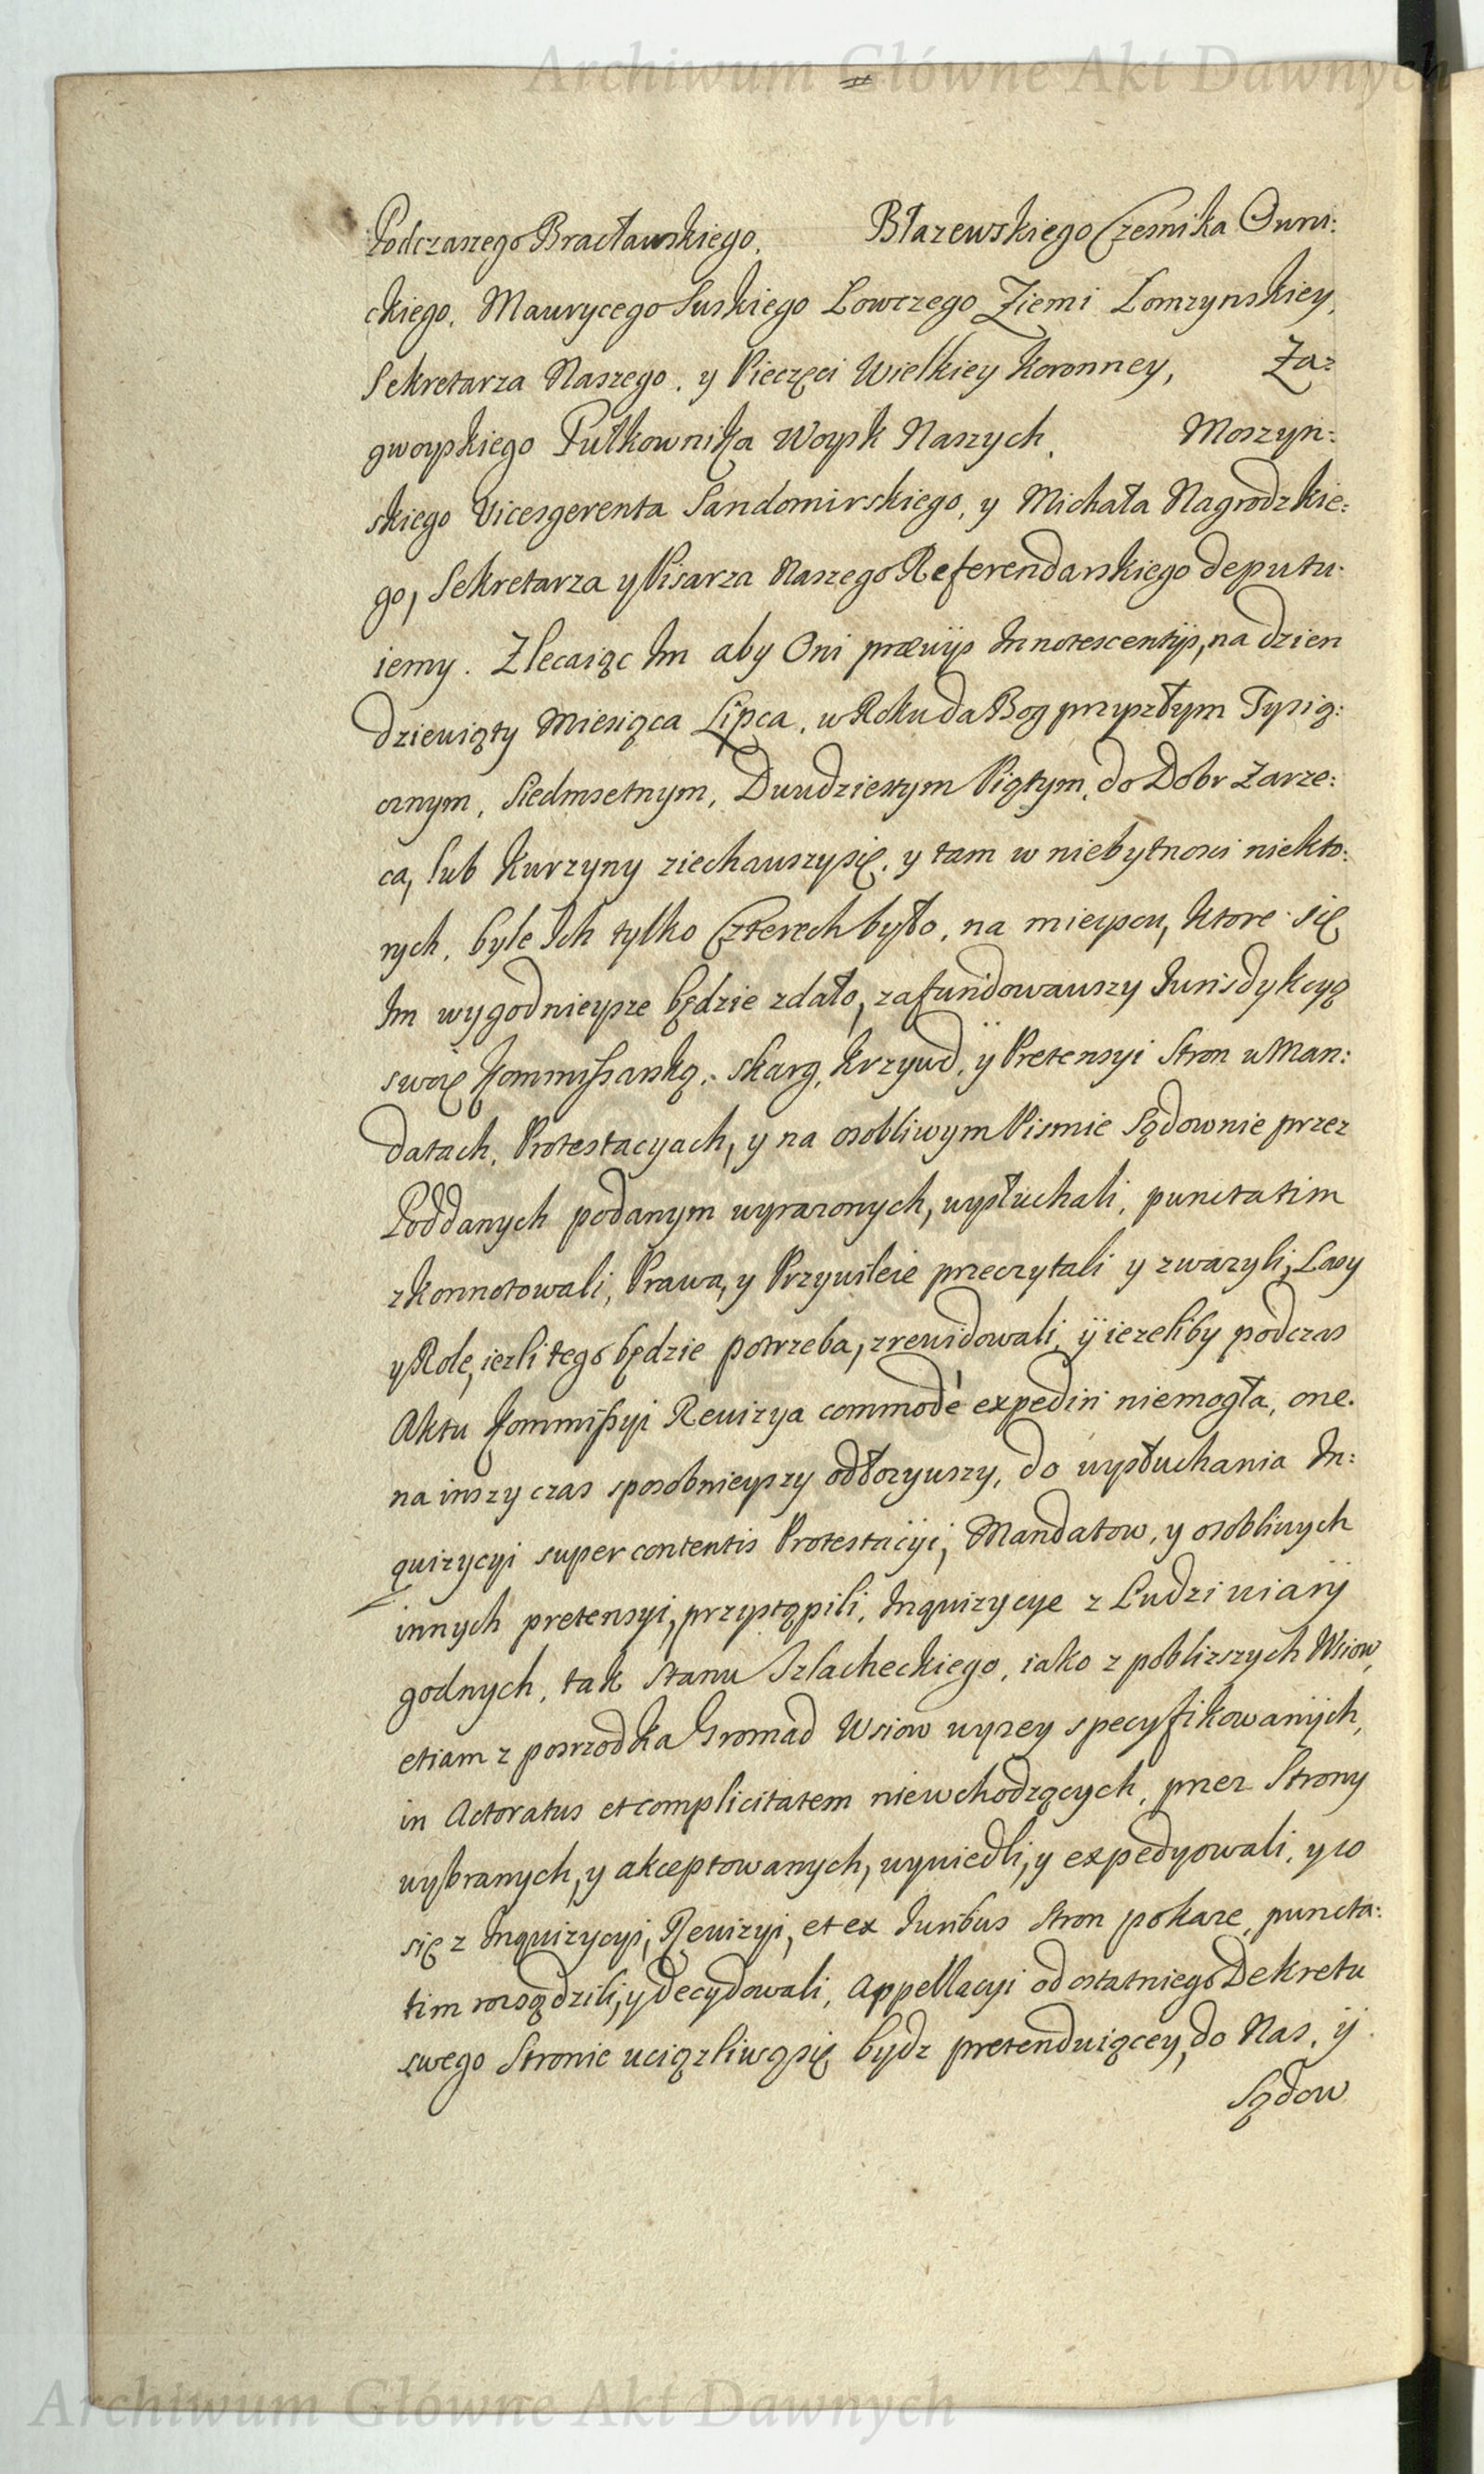 Archiwum Główne Akt Dawnych
Podczaszego Bracławskiego, Błazewskiego Czesnika Owru:
ckiego, Maurycego Suskiego Lowczego Ziemi Lomzynskiey,
Sekretarza Naszego, y Pieczęci Wielkiey Koronney, Za:
gwoyskiego Pułkownika Woysk Naszych, Moszyn:
skiego Vicesgerenta Sandomirskiego, y Michała Nagrodzkie:
go, Sekretarza y Pisarza Naszego Referendarskiego deputu:
iemy. Zlecaiąc Im aby Oni præviis Innotescentiis, na dzien
dziewiąty Miesiąca Lipca, w Roku da Bog przyszłym Tysią:
cznym, Siedmsetnym, Dwudziestym Piątym, do Dobr Zarze:
ca, lub Kurzyny ziechawszysię, y tam w niebytnosci niekto:
rych, byle Ich tylko Czterech było, na mieyscu, ktore się
Im wygodnieysze będzie zdało, zafundowawszy Iurisdykcyą
swoię Kommissarską, skarg, krzywd, ÿ Pretensyi Stron w Man:
datach, Protestacyach, y na osobliwym Pismie Sądownie przez
Poddanych podanym wyrazonych, wysłuchali, punctatim
zkonnotowali, Prawa, y Przywileie przeczytali y zwazyli, Lasy
y Role, iezli tego będzie potrzeba, zrewidowali, ÿ iezeliby podczas
Aktu Kommissyi Rewizya commodè expediri niemogła, one
na inszy czas sposobnieyszy odłozywszy, do wysłuchania In:
quizycyi super contentis Protestacÿi, Mandatow, y osobliwych
innych pretensyi, przystąpili, Inquizycye z Ludzi wiarÿ
godnych, tak stanu Szlacheckiego, iako z poblizszych Wsiow,
etiam z posrzodka Gromad Wsiow wyzey specyfikowanÿch,
in Actoratus et complicitatem niewchodzących, przez Strony
wybranych, y akceptowanych, wywiedli, y expedyowali, y co
się z Inquizycyi, Rewizyi, et ex Iuribus Stron pokaze, puncta:
tim rozsądzili, y decydowali, Appellacyi od ostatniego Dekretu
swego Stronie uciązliwą się bydz pretenduiącey, do Nas, ÿ
Sądow
Archiwum Główne Akt Dawnych